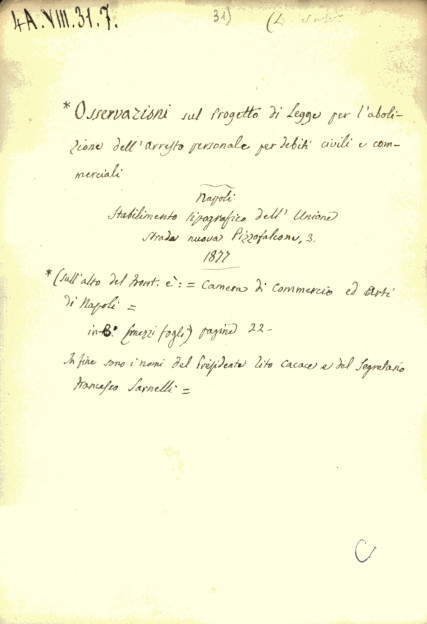 4A.VIII.31.7.
31)
* Osservazioni sul Progetto di Legge per l'aboli-
zione dell'arresto personale per debiti civili e com-
merciali
Napoli
Stabilimento tipografico dell'Unione
Strada nuova Pizzofalcone, 3.
1877
* (Sull'alto del front. è: = Camera di Commercio ed Arti
di Napoli =
in 8.° (mezzi fogli) pagine 22 -
In fine sono i nomi del Presidente Tito Cacace e del Segretario
Francesco Sarnelli =
C